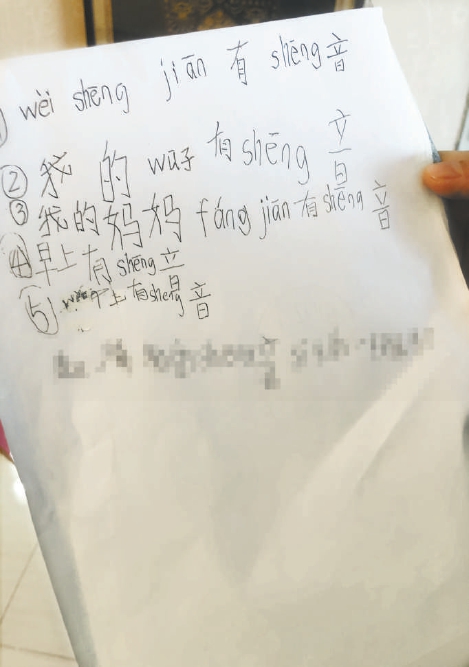 wèi shēng jiān 有 shēng 音
② 我 的 wū子 有 shēng 音
③ 我的妈妈 fáng jiān 有 shēng 音
④ 早上有 shēng 音
⑤ 上有 shēng 音